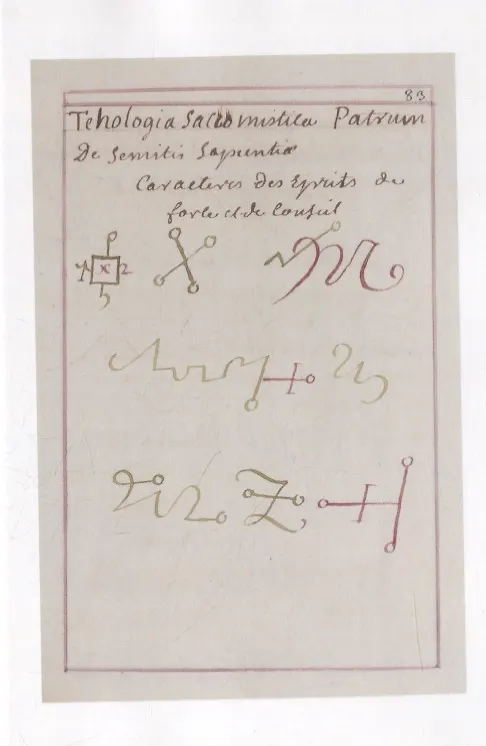 83
Tehologia Sacro mistica Patrum
De Semitis Sapientiæ
Caracteres des Esprits de
force et de Conseil